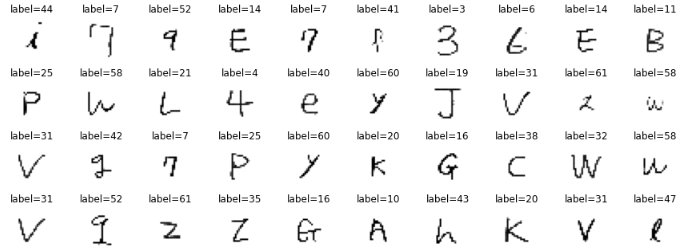 label=44 label=7 label=52 label=14 label=7 label=41 label=3 label=6 label=14 label=11
i 7 q E 7 f 3 6 E B
label=25 label=58 label=21 label=4 label=40 label=60 label=19 label=31 label=61 label=58
P w L 4 e y J V z w
label=31 label=42 label=7 label=25 label=60 label=20 label=16 label=38 label=32 label=58
V g 7 P y K G c W w
label=31 label=52 label=61 label=35 label=16 label=10 label=43 label=20 label=31 label=47
V q z Z G A h K V l